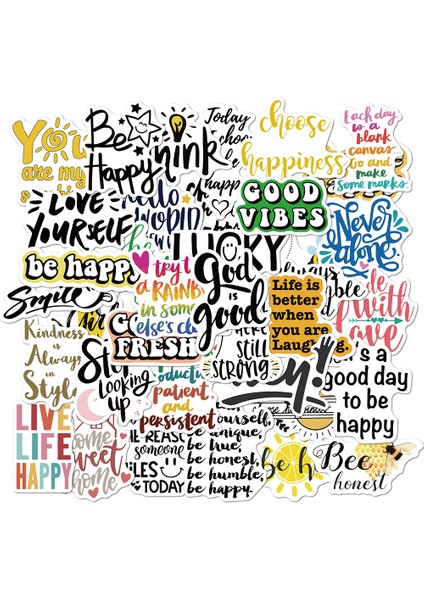 You
are my
Be
Happy
Think
Today
choose
happiness
Each day
is a
blank
canvas.
Go and
make
some marks.
LOVE
YOURSELF
hello
WORLD
happy
GOOD
VIBES
Never
alone
be happy
LUCKY
try to
a RAINBOW
in some
else's cl
God
is
good
Life is
better
when
you are
Laughing.
with
love
Smile
FRESH
Kindness
Always
in
Style
Looking
up
still
strong
productive
patient
and
persistent
's a
good day
to be
happy
LIVE
LIFE
HAPPY
home
sweet
home
REASON
someone
SMILES
TODAY
be yourself,
be unique,
be true,
be honest,
be humble,
be happy.
be h
Bee
honest